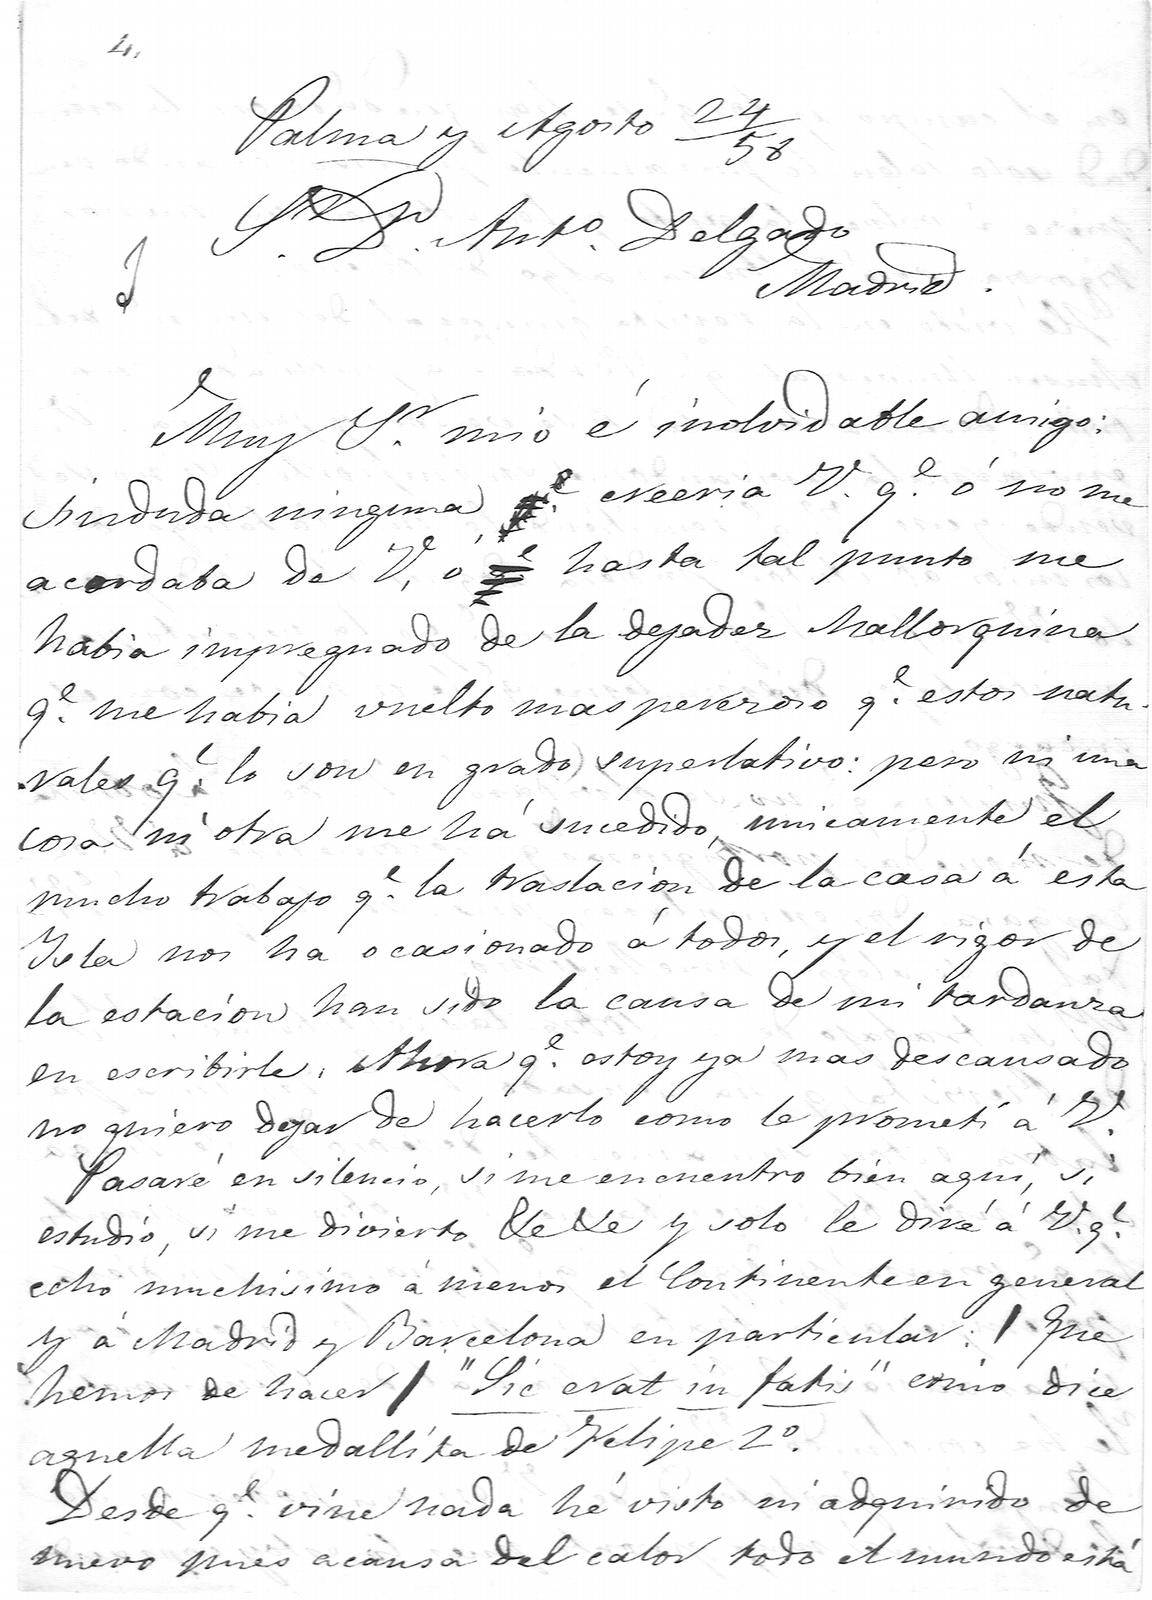 4.
Palma y Agosto 24/58
Sr. Dn. Anto. Delgado
Madrid.
Muy Sr. mio é inolvidable amigo:
sinduda ninguna creeria V. qe. ó no me
acordaba de V, ó hasta tal punto me
habia impregnado de la dejadez Mallorquina
qe. me habia vuelto mas perezoso qe. estos natu-
rales qe. lo son en grado superlativo: pero ni una
cosa ni otra me há sucedido, unicamente el
mucho trabajo qe. la traslacion de la casa á esta
Isla nos ha ocasionado á todos, y el rigor de
la estacion han sido la causa de mi tardanza
en escribirle. Ahora qe. estoy ya mas descansado
no quiero dejar de hacerlo como le prometí á V.
Pasaré en silencio, si me encuentro bien aquí, si
estudio, si me divierto &e &e y solo le diré á V. qe.
echo muchisimo á menos el Continente en general
y á Madrid y Barcelona en particular: ¡Que
hemos de hacer! "Sic erat in fatis" como dice
aquella medallita de Felipe 2º.
Desde qe. vine nada hé visto ni adquirido de
nuevo pues acausa del calor todo el mundo está